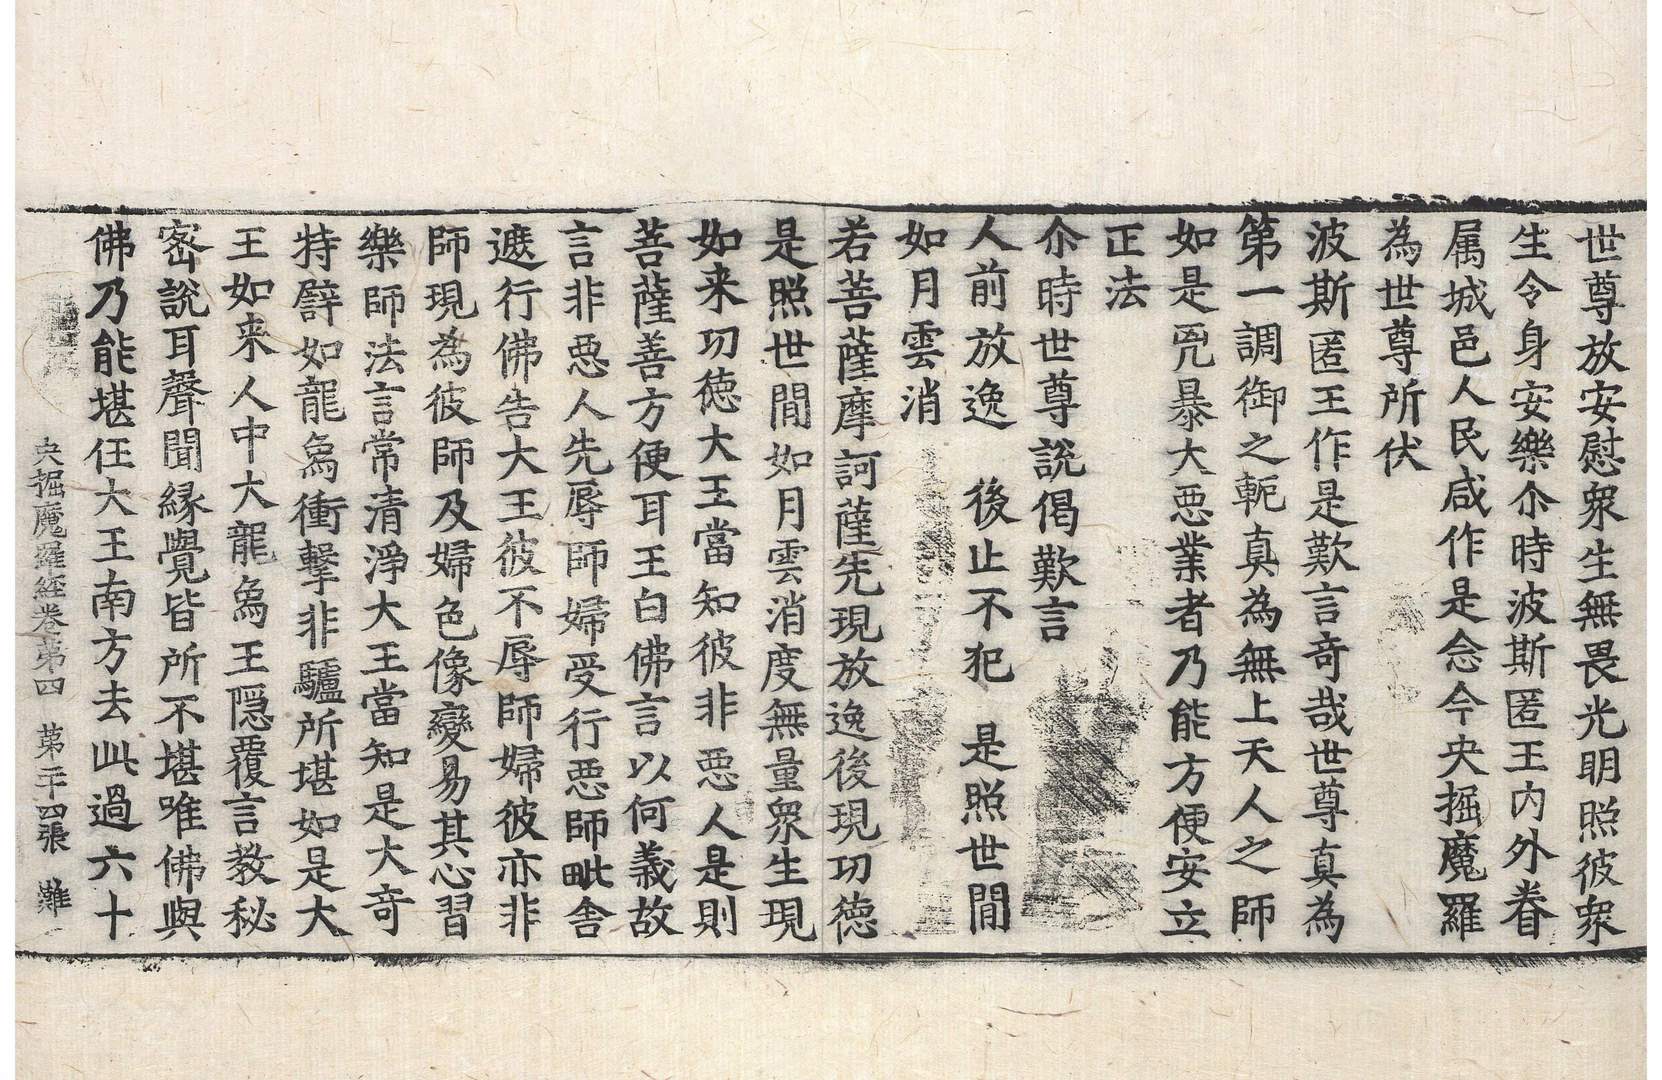 世尊放安慰衆生無畏光明照彼衆
生令身安樂尒時波斯匿王内外眷
属城邑人民咸作是念今央掘魔羅
為世尊所伏
波斯匿王作是歎言奇哉世尊真為
第一調御之軛真為無上天人之師
如是兇暴大惡業者乃能方便安立
正法
尒時世尊說偈歎言
人前放逸　後止不犯　是照世間
如月雲消
若菩薩摩訶薩先現放逸後現功德
是照世間如月雲消度無量衆生現
如来功德大王當知彼非惡人是則
菩薩善方便耳王白佛言以何義故
言非惡人先辱師婦受行惡師毗舍
遮行佛告大王彼不辱師婦彼亦非
師現為彼師及婦色像變易其心習
樂師法言常清淨大王當知是大奇
特譬如龍象衝擊非驢所堪如是大
王如来人中大龍象王隠覆言教秘
宻說耳聲聞緣覺皆所不堪唯佛與
佛乃能堪任大王南方去此過六十
央掘魔羅經卷第四　第二十四張　難